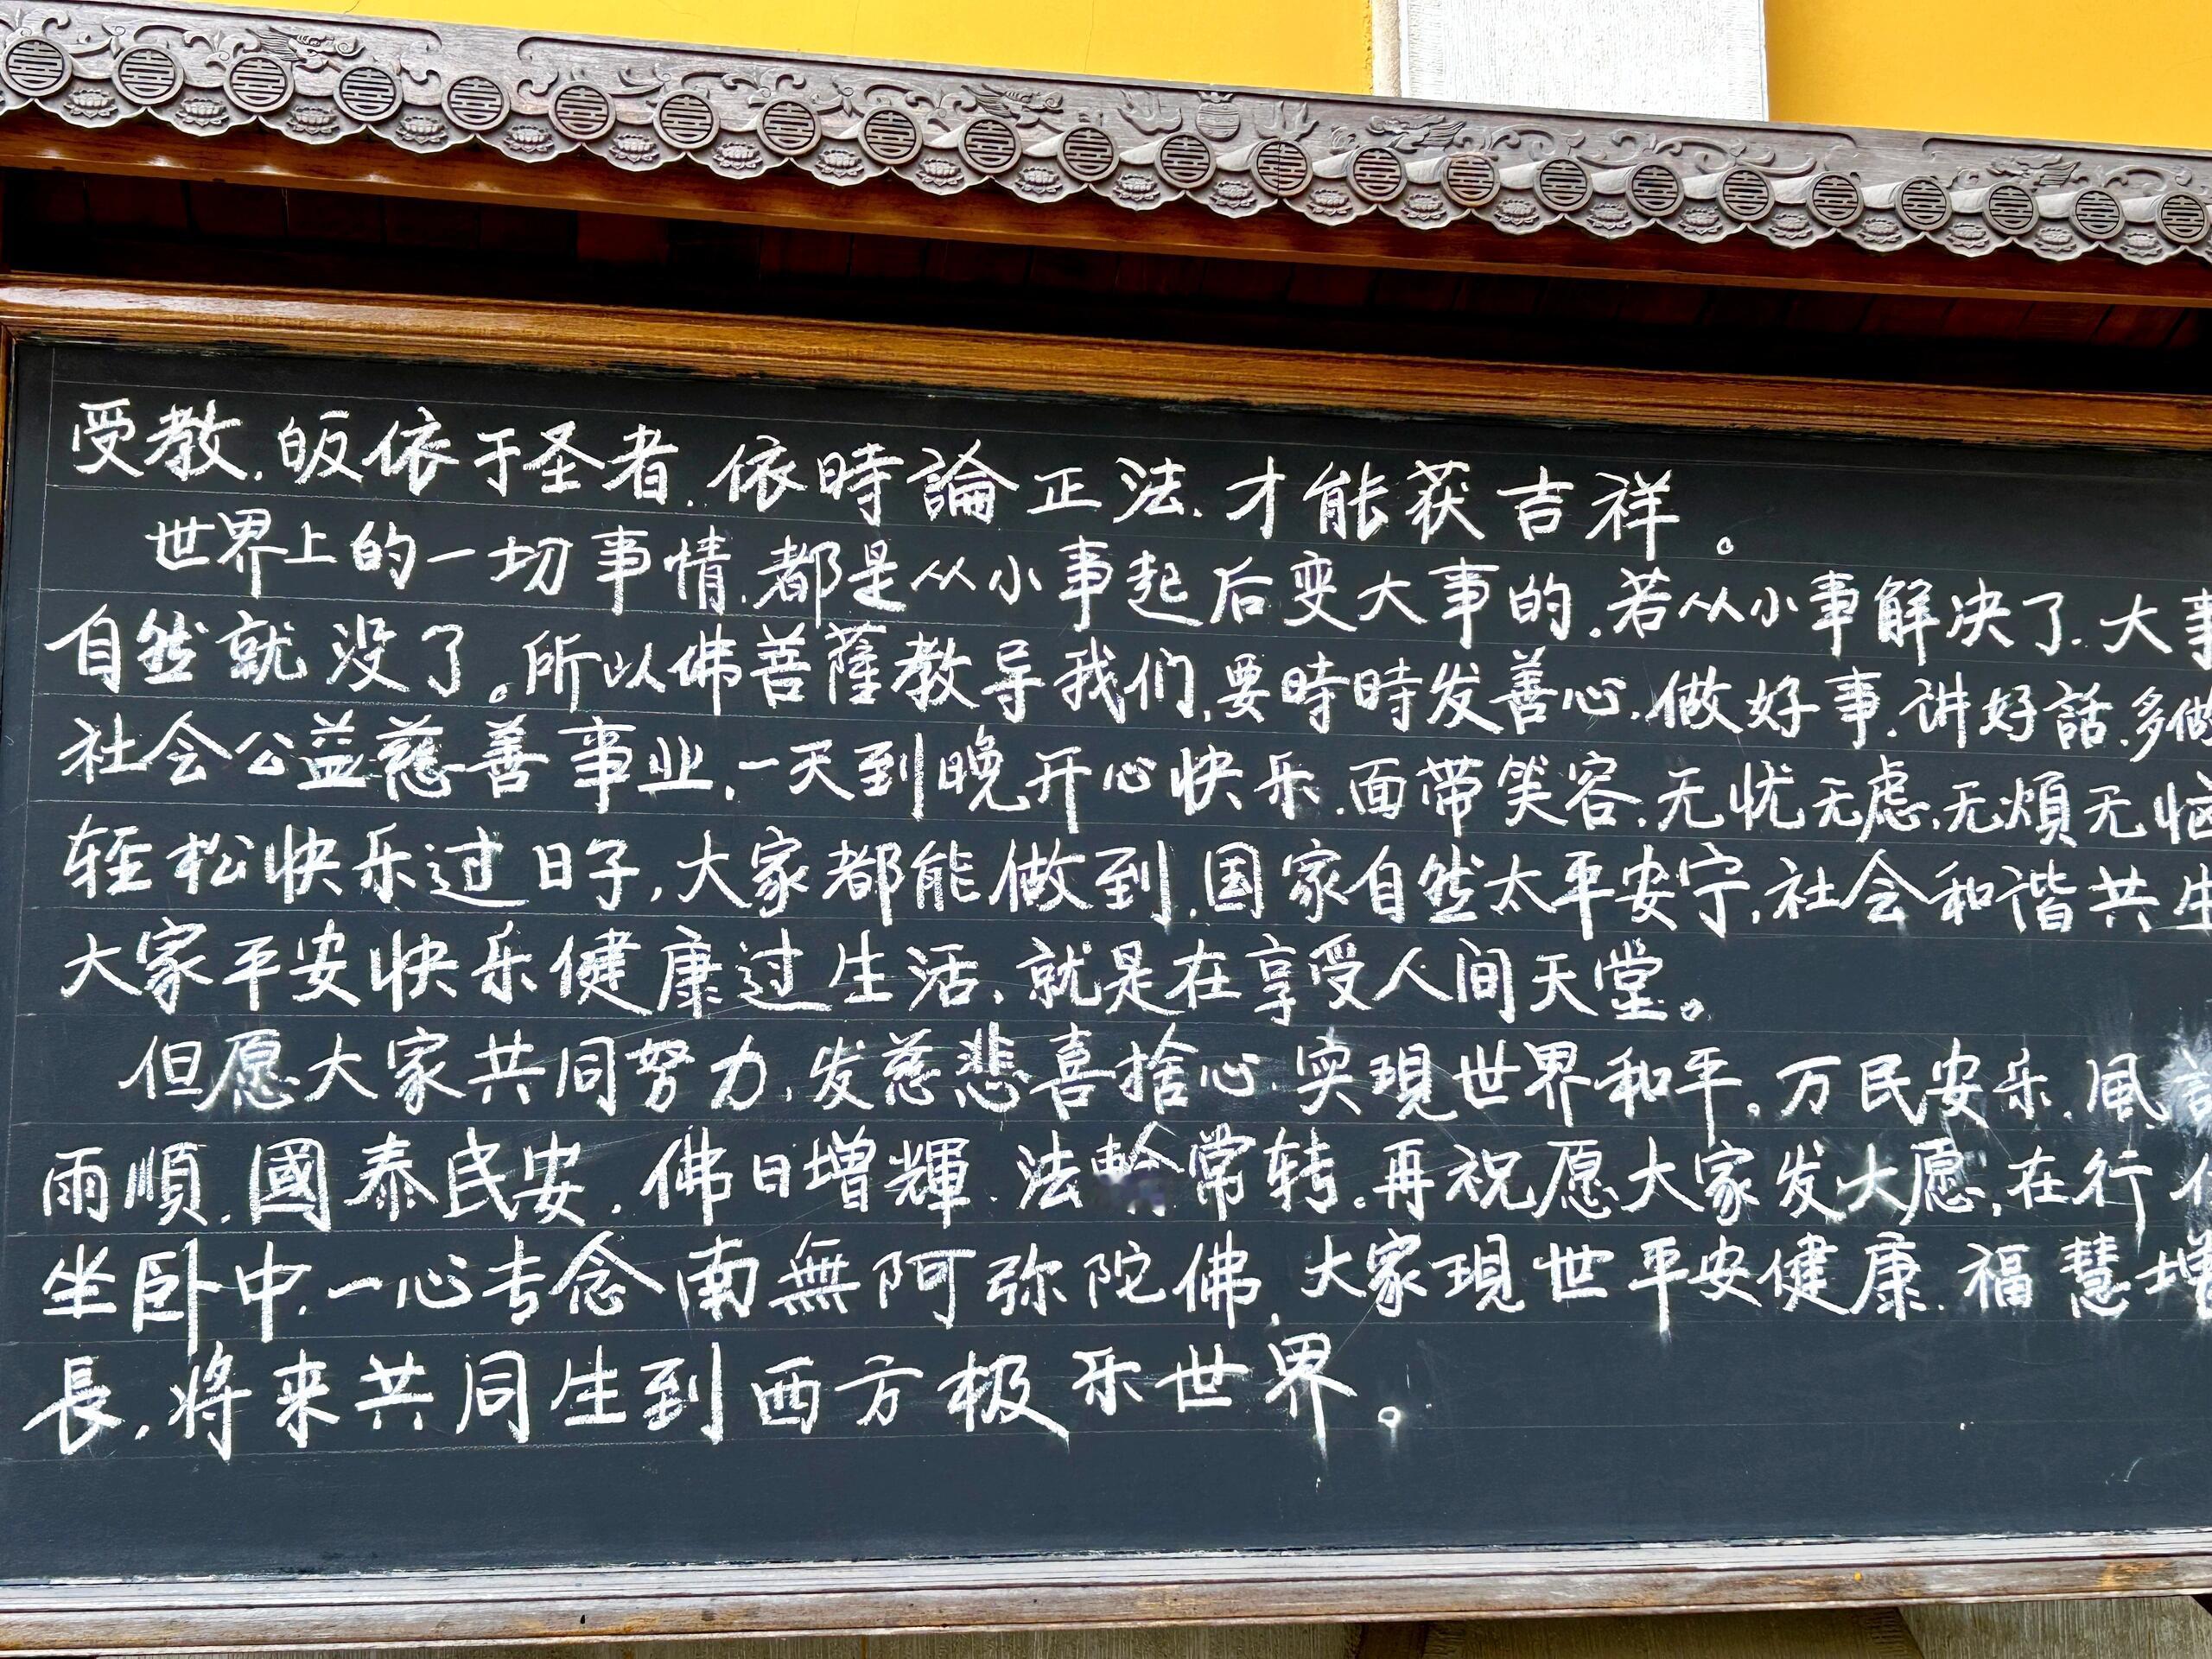 受教.皈依于圣者.依時論正法.才能获吉祥。
世界上的一切事情.都是从小事起后变大事的.若从小事解决了.大事
自然就没了。所以佛菩薩教导我们.要時時发善心.做好事.讲好話.多做
社会公益慈善事业.一天到晚开心快乐.面带笑容.无忧无虑.无煩无恼
轻松快乐过日子,大家都能做到.国家自然太平安宁.社会和谐共生
大家平安快乐健康过生活.就是在享受人间天堂。
但愿大家共同努力.发慈悲喜捨心 实現世界和平.万民安乐.風
雨順.國泰民安.佛日增輝.法 常转.再祝愿大家发大愿,在行
坐卧中.一心专念南無阿弥陀佛.大家現世平安健康.福慧增
長.将来共同生到西方极乐世界。